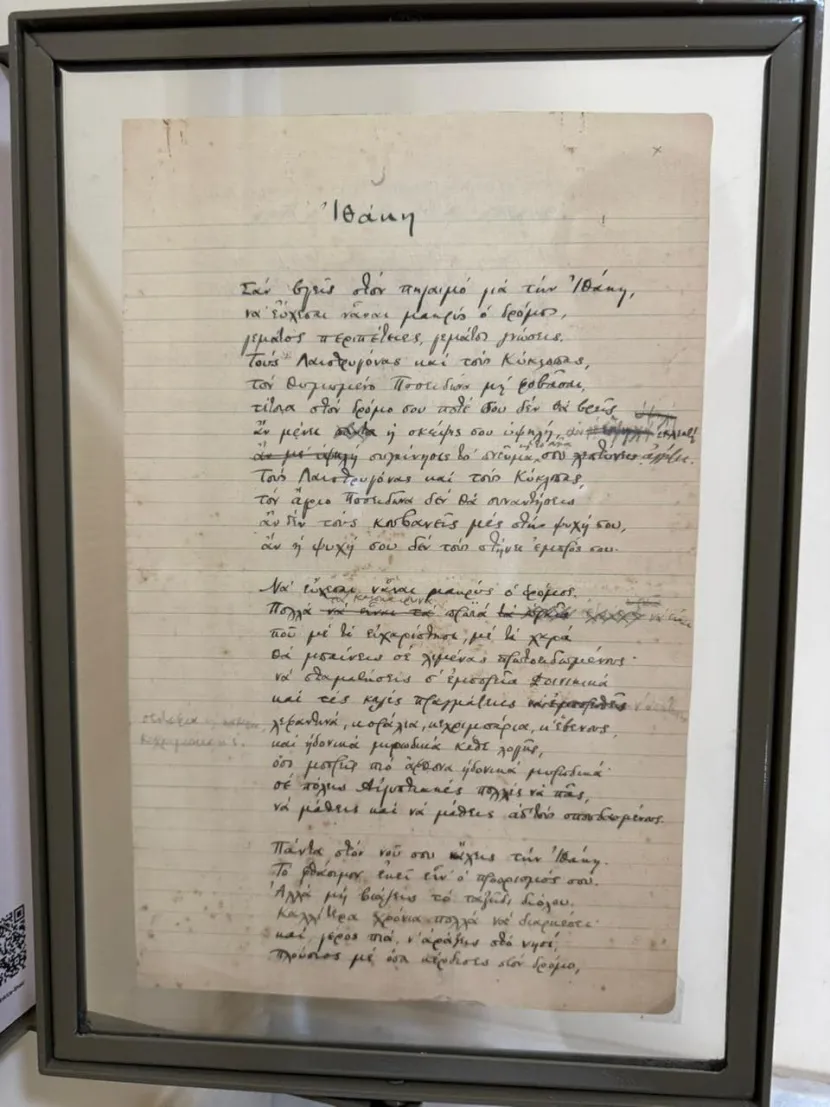 Ἰθάκη
Σάν βγεῖς στόν πηγαιμό γιά τήν Ἰθάκη,
νά εὔχεσαι νἆναι μακρύς ὁ δρόμος,
γεμάτος περιπέτειες, γεμάτος γνώσεις.
Τούς Λαιστρυγόνας καί τούς Κύκλωπας,
τόν θυμωμένο Ποσειδῶνα μή φοβᾶσαι,
τέτοια στόν δρόμο σου ποτέ σου δέν θά βρεῖς
ἄν μένει ἡ σκέψις σου ὑψηλή, ἄν ἐκλεκτή
συγκίνησις τό πνεῦμα
Τούς Λαιστρυγόνας καί τούς Κύκλωπας,
τόν ἄγριο Ποσειδῶνα δέν θά συναντήσεις
ἄν δέν τούς κουβανεῖς μές στήν ψυχή σου,
ἄν ἡ ψυχή σου δέν τούς στήνει ἐμπρός σου.
Νά εὔχεσαι νἆναι μακρύς ὁ δρόμος.
Πολλά τά καλοκαιρινά πρωϊά νά εἶναι
πού μέ τί εὐχαρίστησι, μέ τί χαρά
θά μπαίνεις σέ λιμένας πρωτοειδωμένους·
νά σταματήσεις σ' ἐμπορεῖα Φοινικικά
καί τές καλές πραγμάτειες
σεντέφια
κεχριμπάρια κ' ἔβενους,
καί ἡδονικά μυρωδικά κάθε λογῆς,
ὅσο μπορεῖς πιό ἄφθονα ἡδονικά μυρωδικά·
σέ πόλεις Αἰγυπτιακές πολλές νά πᾶς,
νά μάθεις καί νά μάθεις ἀπ' τούς σπουδασμένους.
Πάντα στόν νοῦ σου νἄχεις τήν Ἰθάκη.
Τό φθάσιμον ἐκεῖ εἶν' ὁ προορισμός σου.
Ἀλλά μή βιάζεις τό ταξεῖδι διόλου.
Καλλίτερα χρόνια πολλά νά διαρκέσει·
καί γέρος πιά ν' ἀράξεις στό νησί,
πλούσιος μέ ὅσα κέρδισες στόν δρόμο,